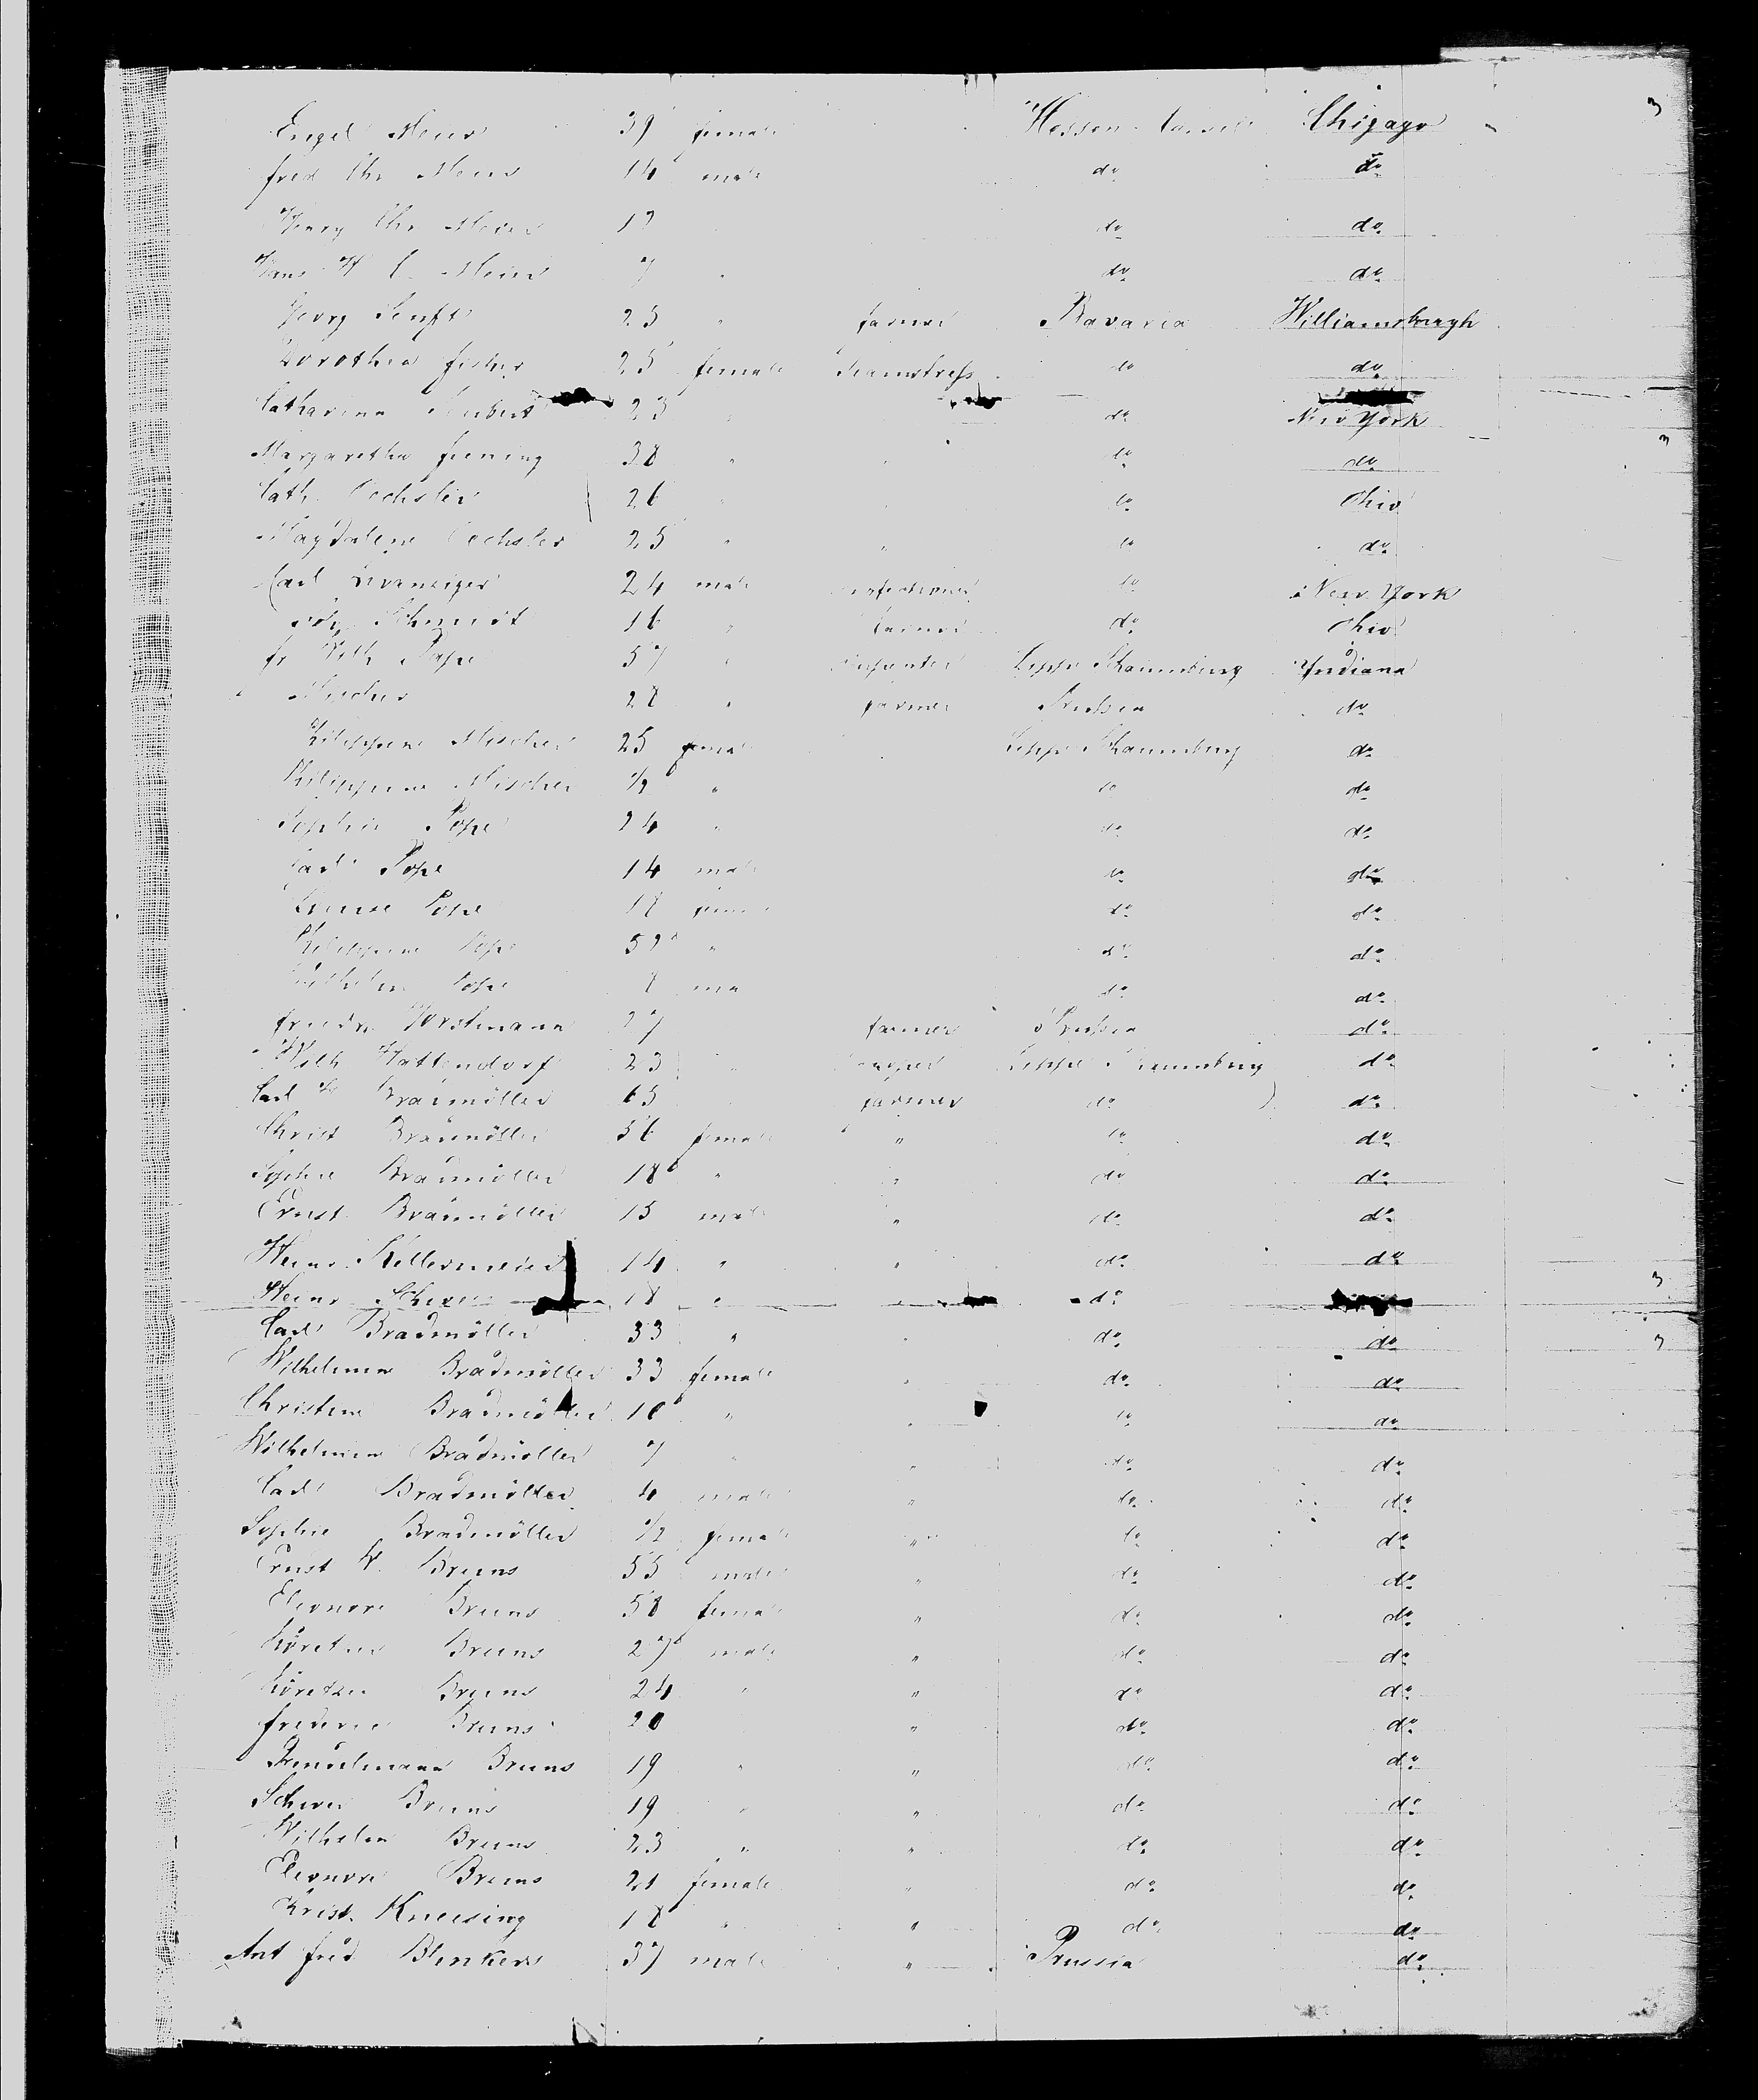 Engel Meier 39 female Hessen Cassel Chigago 3
fred Chr Meier 14 male do do
Henry Chr Meier 12 do do
Hans H C Meier 7 " do do
Georg Senft 25 " farmer Bavaria Williamsburgh
Dorothea fisher 25 female Seamstress do do
Catharina Seubert 23 " do New York
Margaretha 38 " " do do 3
Cath Oechsler 26 " " do Ohio
Magdalene Oechsler 25 " " do do
Carl Zwanziger 24 male do New York
Joh Schmidt 16 " farmer do Ohio
fr Wilh Pope 57 " Carpenter Lippe Schaumburg Indiana
Mischer 28 " farmer Preussen do
Philippine Mischer 25 female Lippe Schaumburg do
Philippine Mischer 1/2 " do do
Sophie Pope 24 " do do
Carl Pope 14 male do do
Louise Pope 18 female do do
Philippine Pope 59 " do do
Wilhelm Pope 8 ma do do
friedr Horstmann 27 farmer Preussen do
Wilh Hattendorf 23 " Lippe Schaumburg do
Carl Bradmöller 63 farmer do do
Christ Bradmöller 56 female " do do
Sophie Bradmöller 18 " " do do
Ernst Bradmöller 15 male " do do
Heinr Kellermeier 14 " " do do
Heinr 18 " " do 3
Carl Bradmöller 33 " " do do 3
Wilhelmine Bradmöller 33 female " do do
Christine Bradmöller 10 " " do do
Wilhelmine Bradmöller 7 " " do do
Carl Bradmöller 4 male " do do
Sophie Bradmöller 1/2 female " do do
Ernst W. Bruns 55 male " do do
Eleonore Bruns 58 female " do do
Bruns 27 male " do do
Bruns 24 " " do do
frederic Bruns 20 " do do
Bruns 19 " " do do
Bruns 19 " " do do
Wilhelm Bruns 23 " " do do
Eleonore Bruns 21 female " do do
Christ. Kneising 18 " " do do
Ant fred Blinkers 37 male " Prussia do